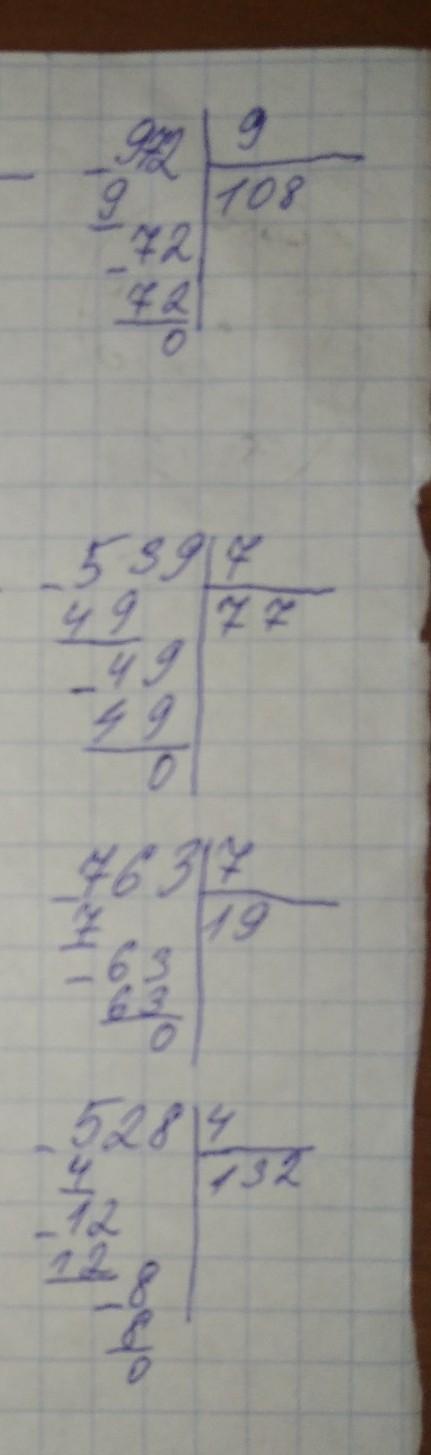 - 972 9
9 108
- 72
72
0
- 539 7
49 77
- 49
49
0
- 763 7
7 19
- 63
63
0
- 528 4
4 132
- 12
12
- 8
8
0